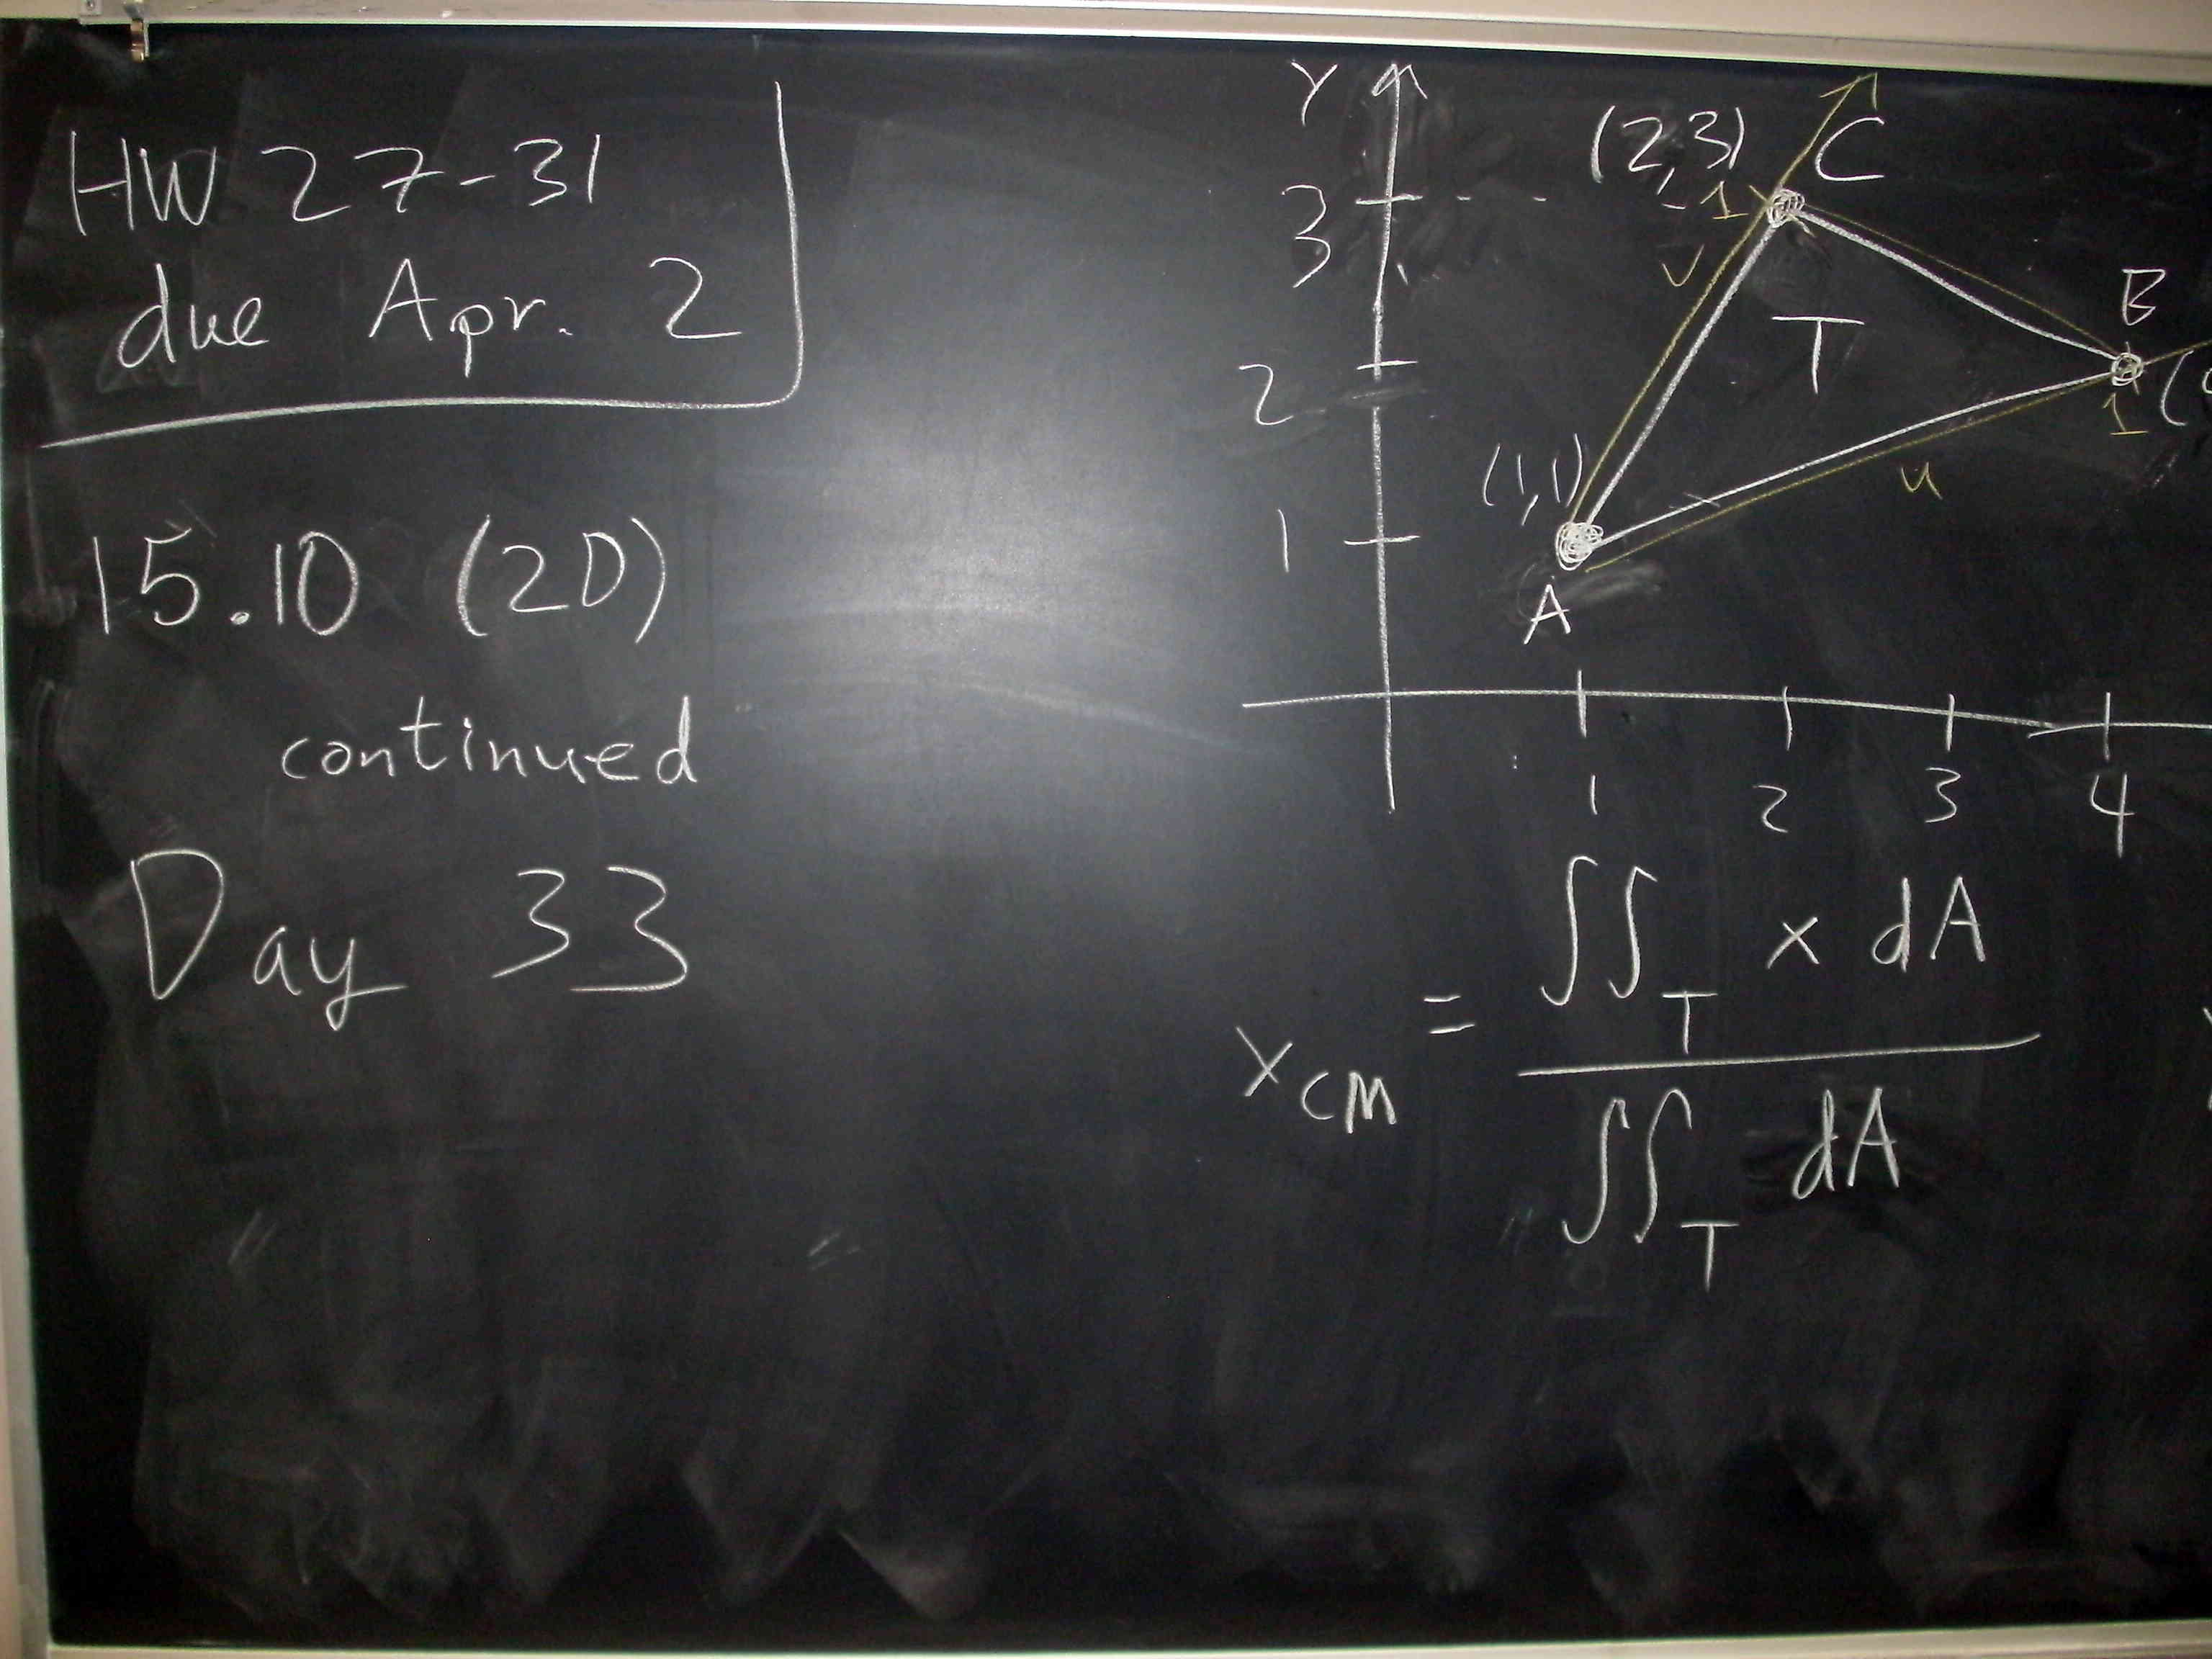 HW 27-31
due Apr. 2
15.10 (2D)
continued
Day 33
Y
(2,3) C
3
1
v
T
B
2
1
(1,1)
u
1
A
1 2 3 4
x_CM = ∬_T x dA
∬_T dA